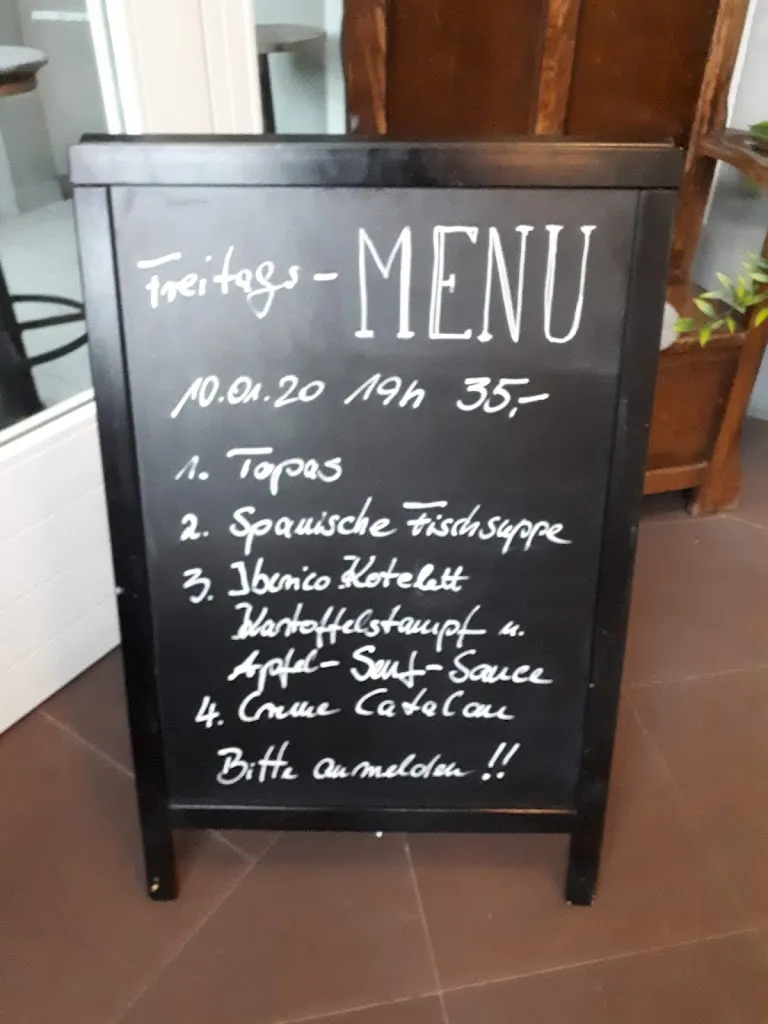 Freitags - MENU
10.01.20 19h 35,-
1. Tapas
2. Spanische Fischsuppe
3. Iberico Kotelett
Kartoffelstampf u.
Apfel-Senf-Sauce
4. Creme Catalan
Bitte anmelden !!